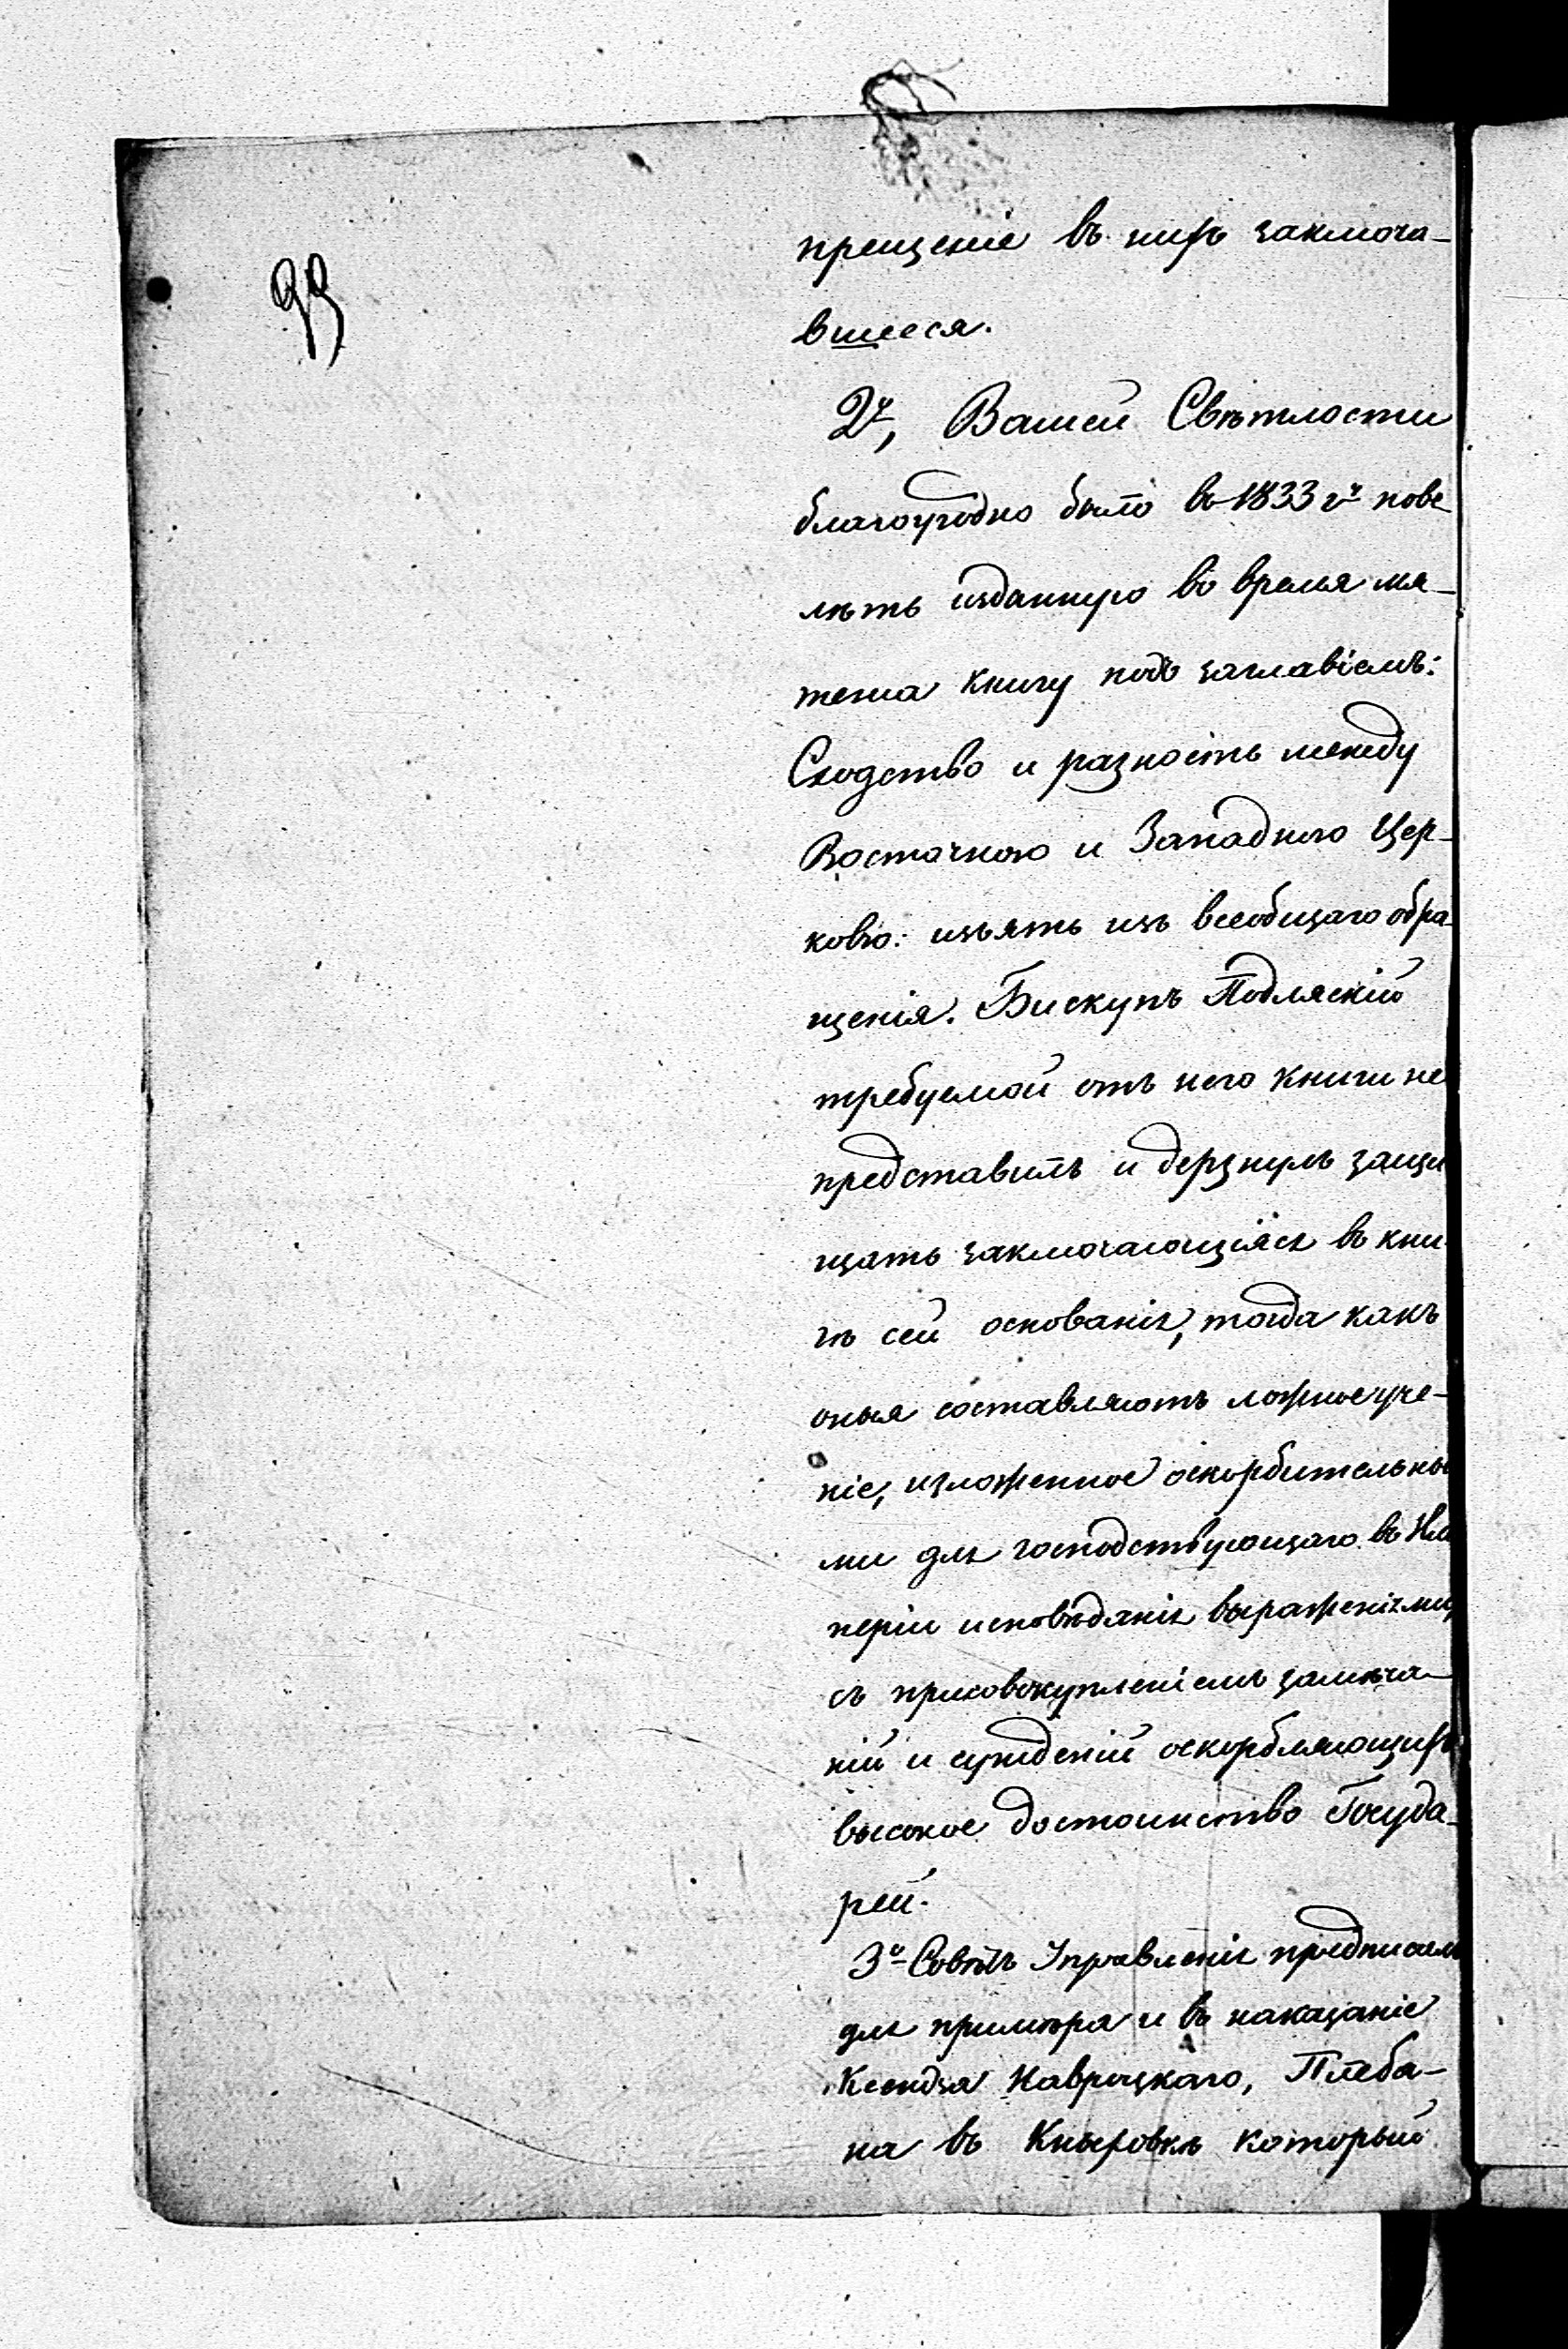 99
прещеніе въ нихъ заключа-
вшееся.
2е, Вашей Свѣтлости
благоугодно было въ 1833 гѵ пове-
лѣть изданную во время мя-
тежа книгу подъ заглавіемъ:
Сходство и разность между
Восточною и Западною Цер-
ковью: изъять изъ всеобщаго обра-
щенія. Бискупъ Подляскій
требуемой отъ него книги не
представилъ и дерзнулъ защи
щать заключающіяся въ кни-
гѣ сей основанія, тогда какъ
оныя составляютъ ложное уче-
ніе, изложенное оскорбительны
ми для господствующаго въ Им
періи исповѣданія выраженіями,
съ присовокупленіемъ замѣча-
ній и сужденій оскорбляющихъ
высокое достоинство Госуда-
рей.
3е Совѣтъ Управленія предписалъ
для примѣра и въ наказаніе
Ксендза Навроцкаго, Плеба-
на въ который